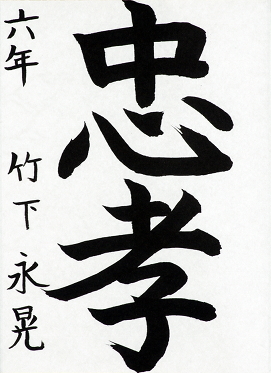 忠孝
六年 竹下 永晃